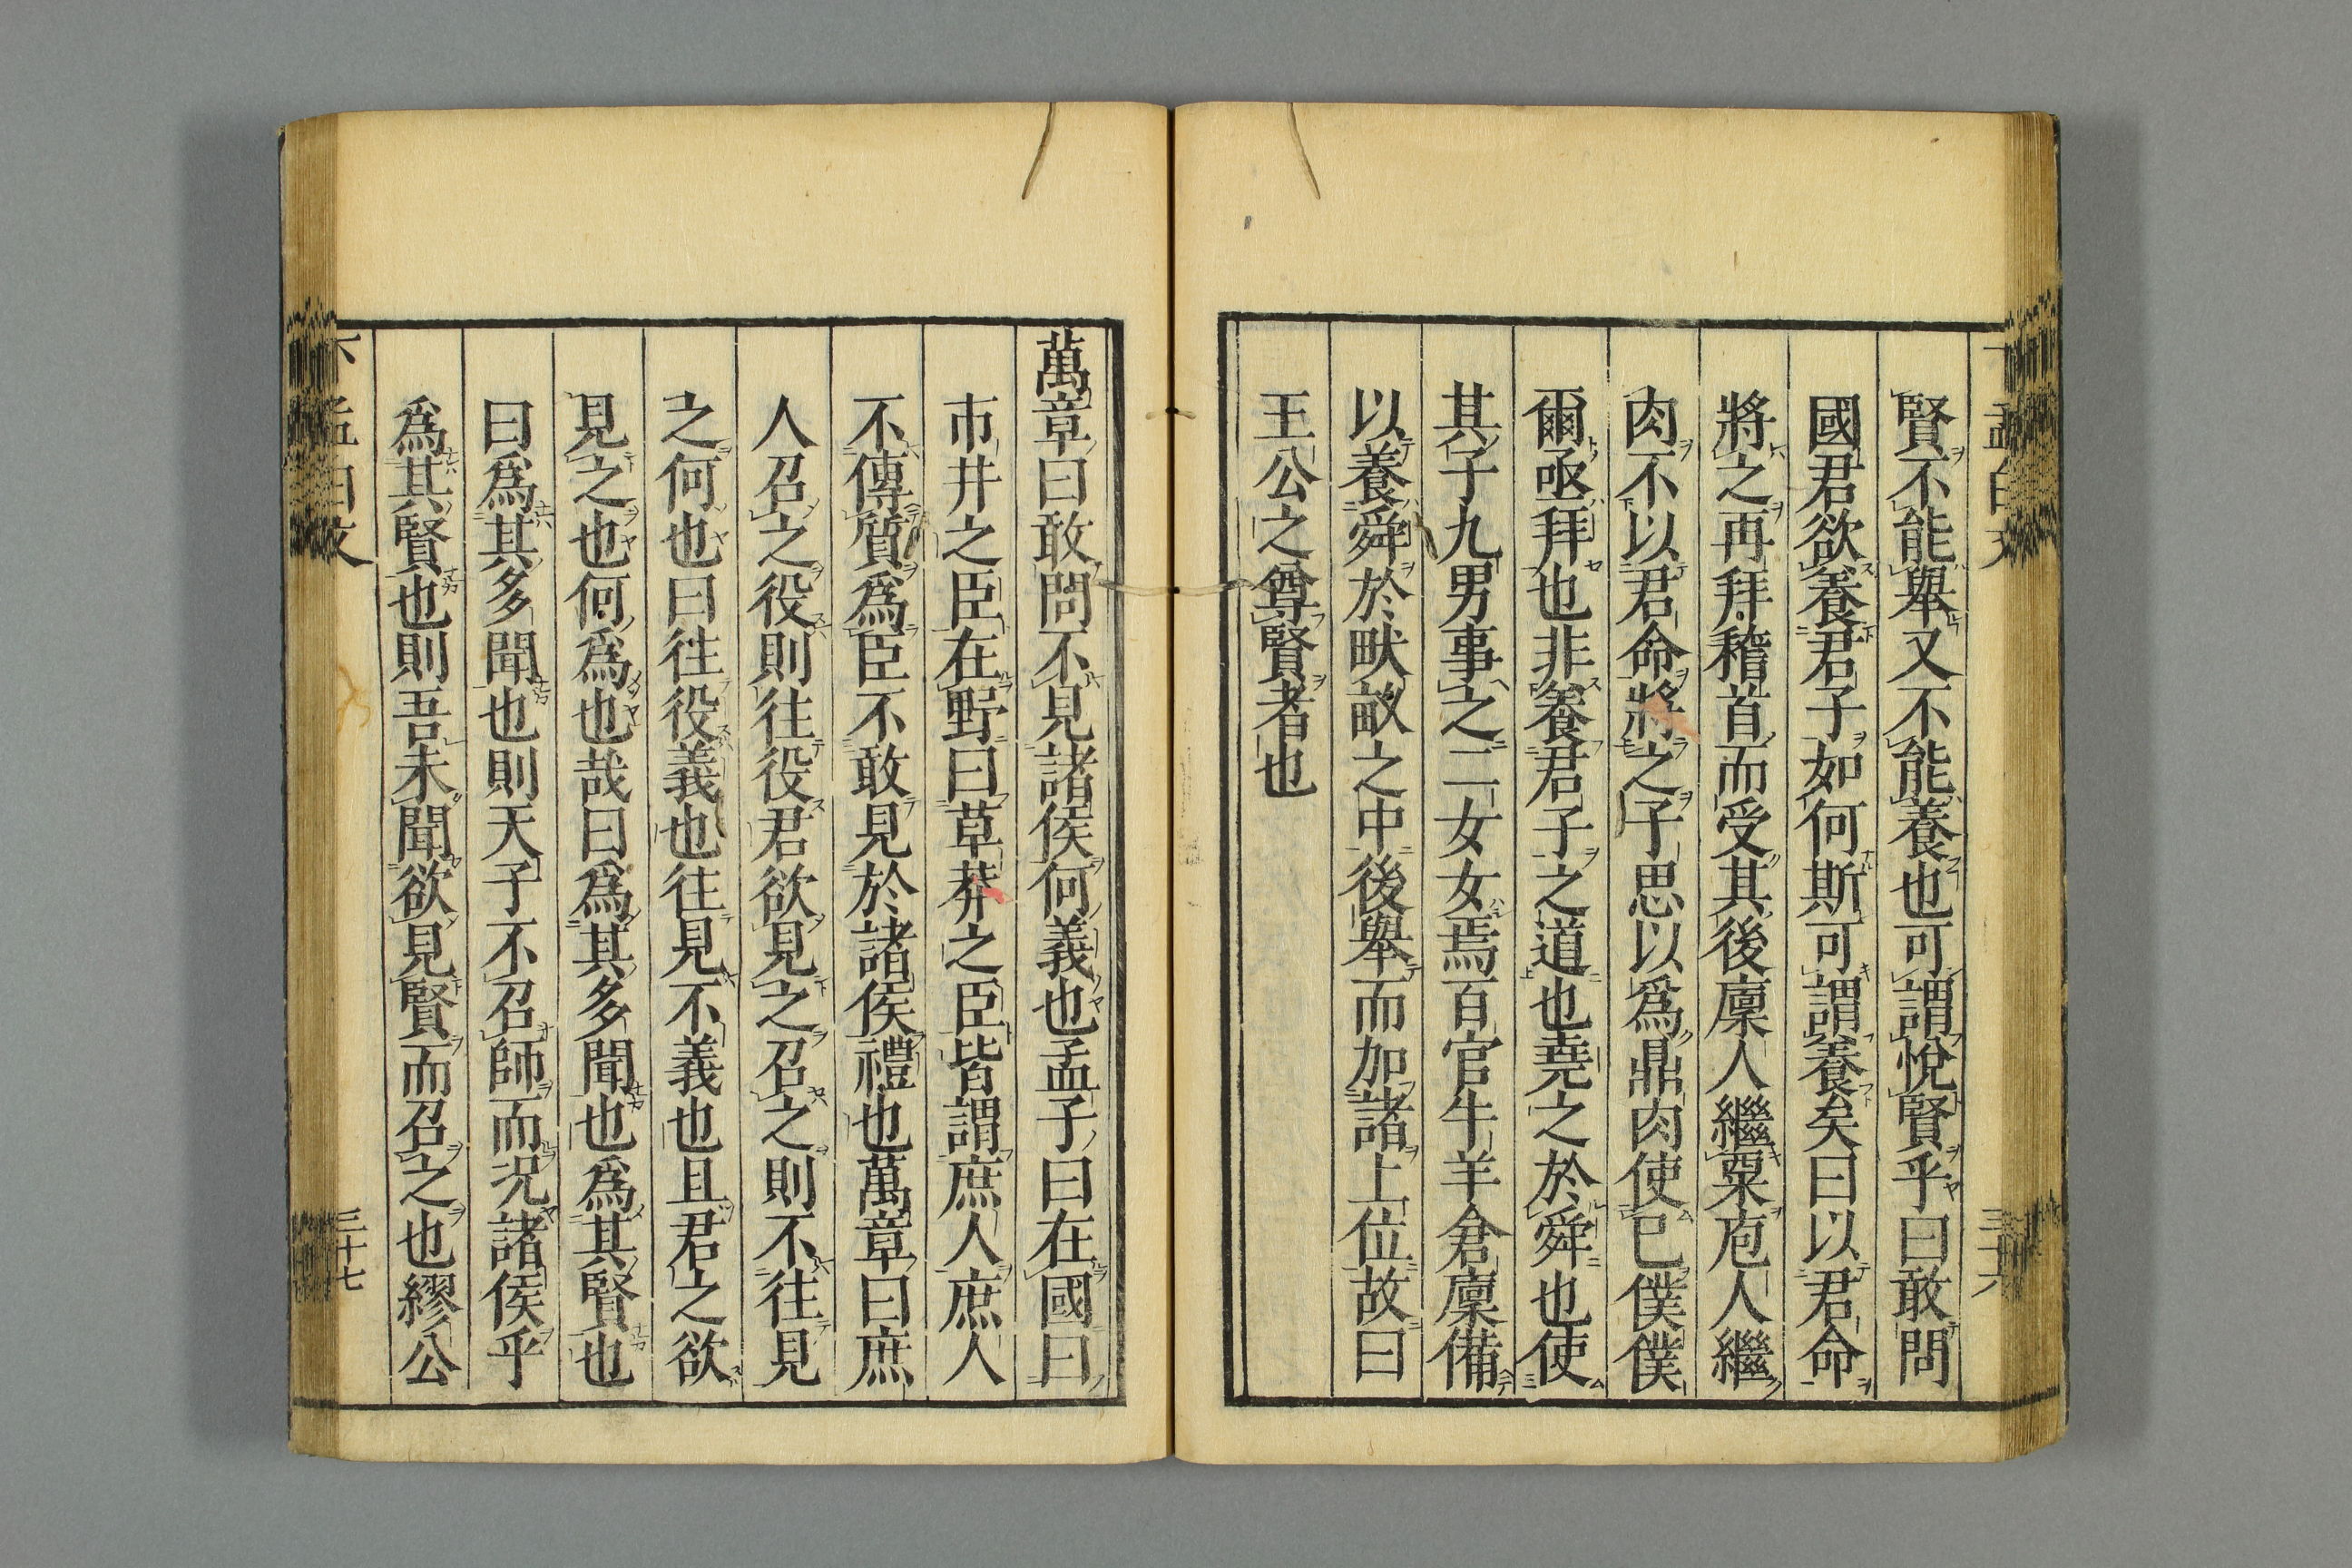 賢不能舉又不能養也可謂悅賢乎曰敢問
國君欲養君子如何斯可謂養矣曰以君命
將之再拜稽首而受其後廩人繼粟庖人繼
肉不以君命將之子思以爲鼎肉使已僕僕
爾亟拜也非養君子之道也堯之於舜也使
其子九男事之二女女焉百官牛羊倉廩備
以養舜於畎畝之中後舉而加諸上位故曰
王公之尊賢者也
萬章曰敢問不見諸侯何義也孟子曰在國曰
市井之臣在野曰草莽之臣皆謂庶人庶人
不傳質爲臣不敢見於諸侯禮也萬章曰庶
人召之役則往役君欲見之召之則不往見
之何也曰往役義也往見不義也且君之欲
見之也何爲也哉曰爲其多聞也爲其賢也
曰爲其多聞也則天子不召師而况諸侯乎
爲其賢也則吾未聞欲見賢而召之也繆公
三十七